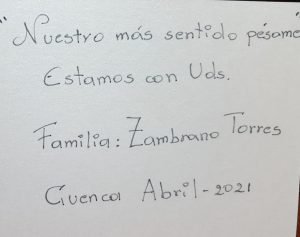 "Nuestro más sentido pésame
Estamos con Uds.
Familia: Zambrano Torres
Cuenca Abril-2021